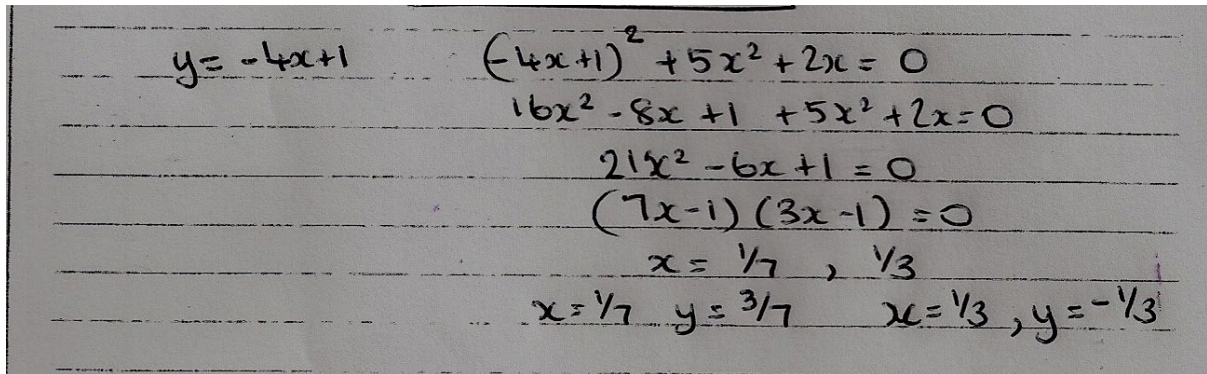 y = -4x+1 (-4x+1)² + 5x² + 2x = 0
16x² - 8x + 1 + 5x² + 2x = 0
21x² - 6x + 1 = 0
(7x-1)(3x-1) = 0
x = 1/7 , 1/3
x = 1/7 y = 3/7 x = 1/3 , y = -1/3